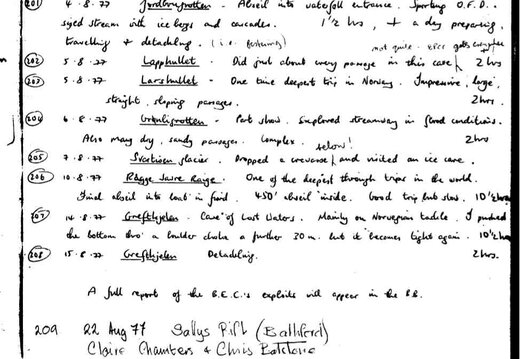 201 4.8.77 Jordbrugrotten - Abseil into waterfall entrance. Sporting O.F.D.
sized stream with ice bergs and cascades. 1½ hrs, + a day preparing,
travelling & detackling. (i.e. festering)
not quite
202 5.8.77 Lapphullet - Did just about every passage in this cave 2 hrs
203 5.8.77 Larshullet - One time deepest trip in Norway. Impressive, large,
straight, sloping passages. 2 hrs.
204 6.8.77 Grønligrotten - Part show. Explored streamway in flood conditions.
Also many dry, sandy passages. Complex. 2 hrs
below!
205 7.8.77 Svartisen glacier. Dropped a crevasse and visited an ice cave.
206 10.8.77 Rågge Javre Raige. One of the deepest through trips in the world.
Final abseil into boat in fiord. 450' abseil inside. Good trip but slow. 10½ hrs
207 14.8.77 Greftkjelen - Cave of Lost Waters. Mainly on Norwegian tackle. I pushed
the bottom thro' a boulder choke a further 30m. but it becomes tight again. 10½ hrs
208 15.8.77 Greftkjelen Detackling. 2 hrs.
A full report of the B.E.C.'s exploits will appear in the BB.
209 22 Aug 77 Sallys Rift (Bathford)
Claire Chambers & Chris Batstone